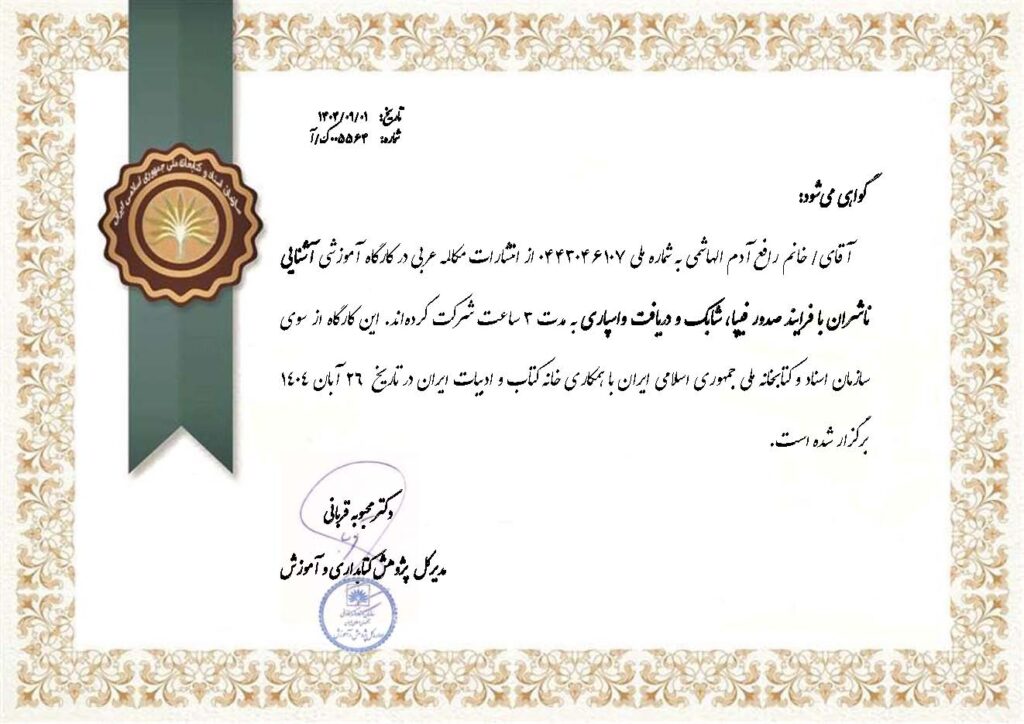 سازمان اسناد و کتابخانه ملی جمهوری اسلامی ایران
تاریخ: ۱۴۰۴/۰۹/۰۱
شماره: ۰۰۵۵۶۴ک/آ
گواهی می‌شود:
آقای/ خانم رافع آدم الهاشمی به شماره ملی ۰۴۴۳۰۴۶۱۰۷ از انتشارات مکالمه عربی در کارگاه آموزشی آشنایی
ناشران با فرایند صدور فیپا، شابک و دریافت واسپاری به مدت ۳ ساعت شرکت کرده‌اند. این کارگاه از سوی
سازمان اسناد و کتابخانه ملی جمهوری اسلامی ایران با همکاری خانه کتاب و ادبیات ایران در تاریخ ۲۶ آبان ۱۴۰۴
برگزار شده است.
دکتر محبوبه قربانی
مدیرکل پژوهش کتابداری و آموزش